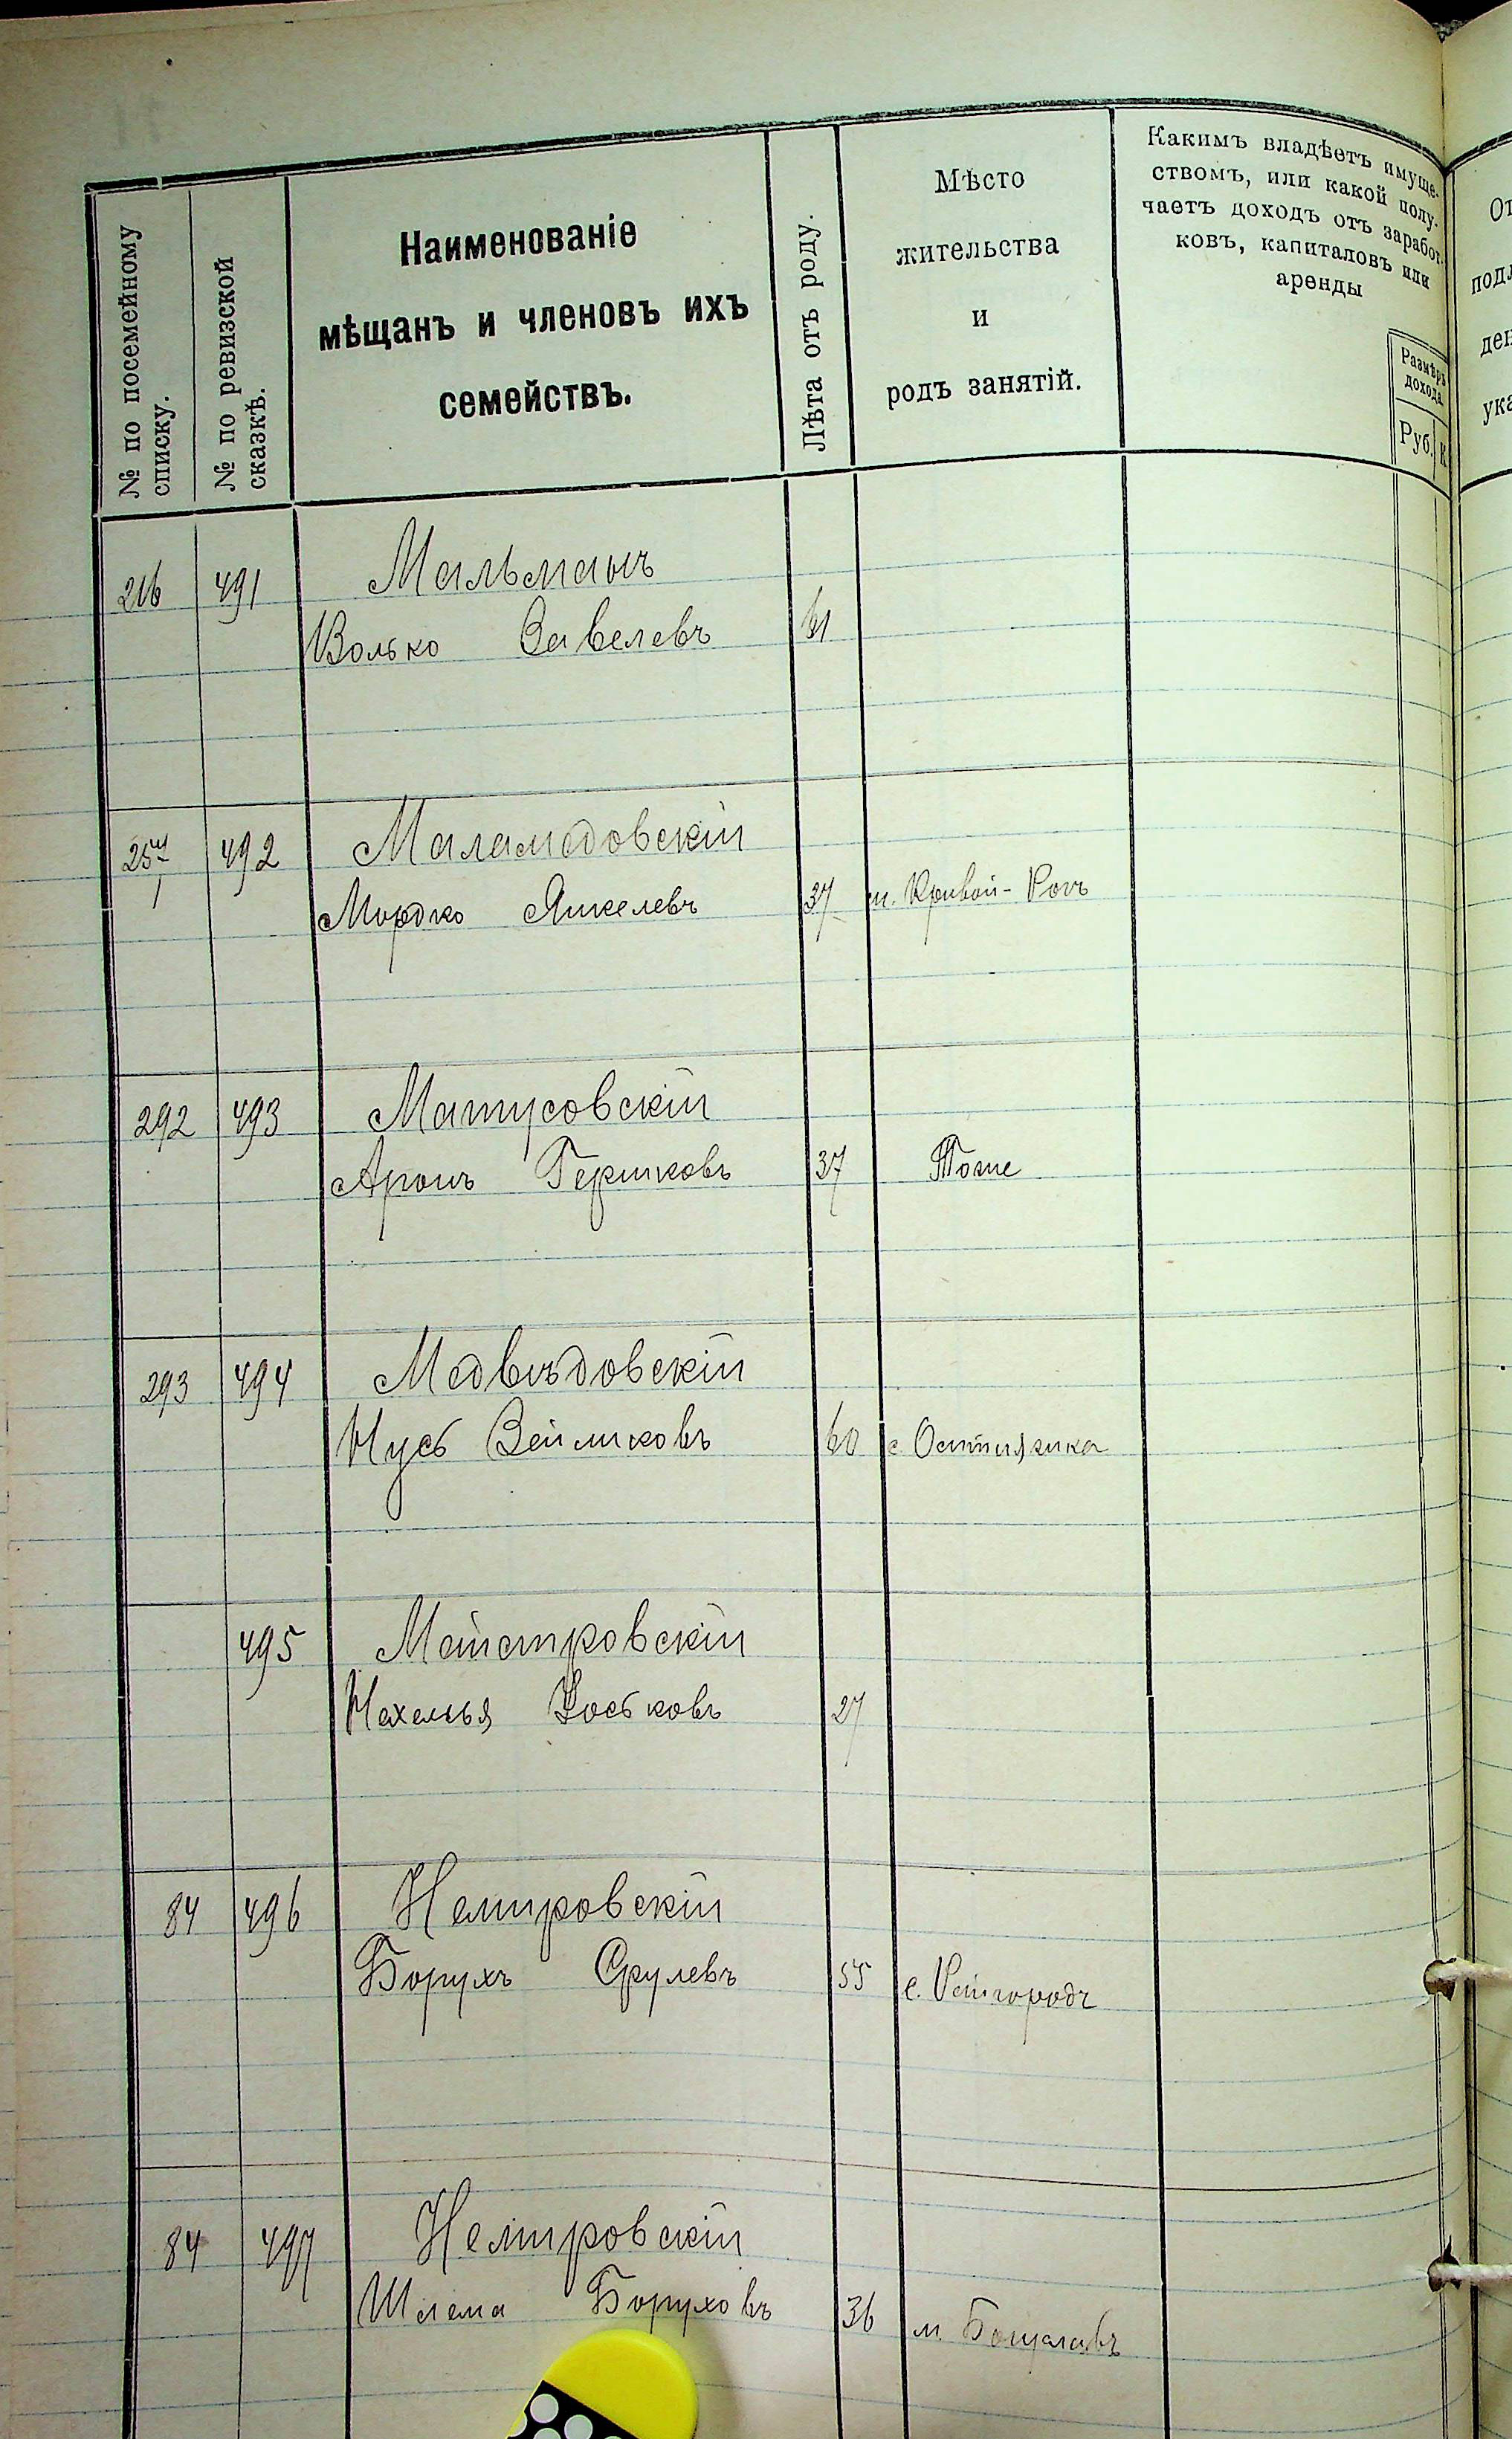 № по посемейному
списку.
№ по ревизской
сказкѣ.
Наименованіе
мѣщанъ и членовъ ихъ
семействъ.
Лѣта отъ роду.
Мѣсто
жительства
и
родъ занятій.
Какимъ владѣетъ имуще-
ствомъ, или какой полу-
чаетъ доходъ отъ заработ-
ковъ, капиталовъ или
аренды
Размѣръ
дохода
Руб. К
216 491 Мальманъ
Волько Завелевъ 61
492 Маламедовскій
Мордко Янкелевъ 37 м. Кривой-Рогъ
292 493 Матусовскій
Аронъ Гершковъ 37 Тоже
293 494 Медвѣдовскій
Нусь Зейликовъ 60 с.
495 Майстровскій
Нахемья Іоськовъ 27
84 496 Немировскій
Борухъ Срулевъ 55 с. Райгородъ
84 497 Немировскій
Шлема Боруховъ 36 м. Богуславъ